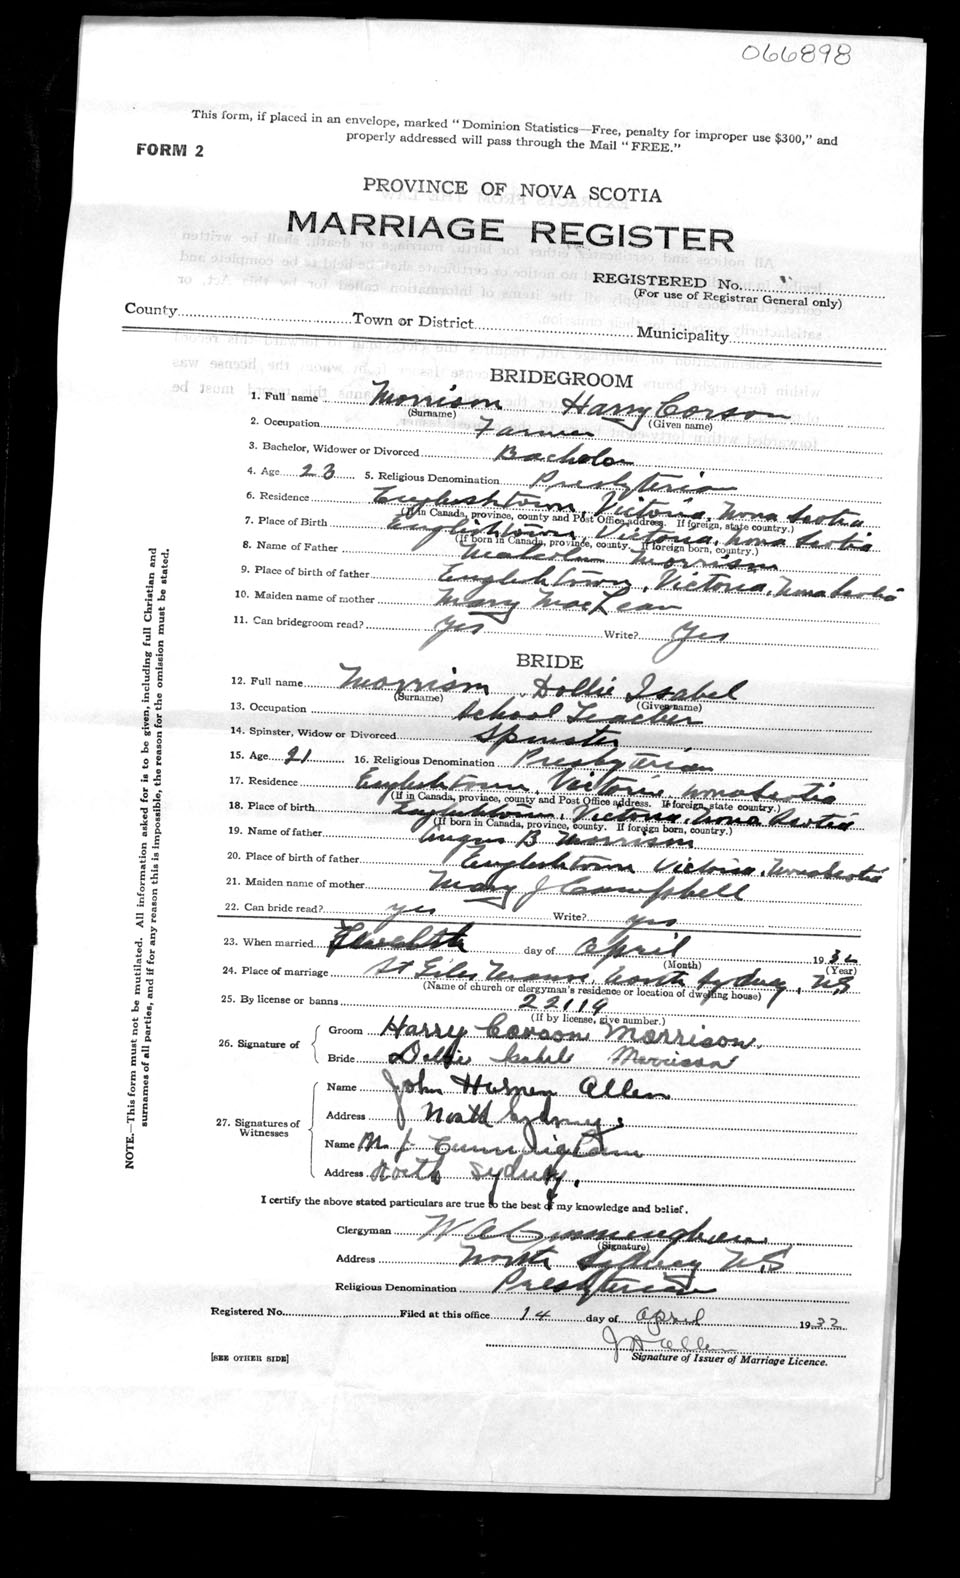 066898
This form, if placed in an envelope, marked "Dominion Statistics—Free, penalty for improper use $300," and
properly addressed will pass through the Mail "FREE."
FORM 2
PROVINCE OF NOVA SCOTIA
MARRIAGE REGISTER
REGISTERED No.
(For use of Registrar General only)
County Town or District Municipality
BRIDEGROOM
1. Full name Morrison Harry Corson
(Surname) (Given name)
2. Occupation Farmer
3. Bachelor, Widower or Divorced Bachelor
4. Age 23 5. Religious Denomination Presbyterian
6. Residence Englishtown, Victoria, Nova Scotia
(If in Canada, province, county and Post Office address. If foreign, state country.)
7. Place of Birth Englishtown, Victoria, Nova Scotia
(If born in Canada, province, county. If foreign born, country.)
8. Name of Father Malcolm Morrison
9. Place of birth of father Englishtown, Victoria, Nova Scotia
10. Maiden name of mother Mary MacLean
11. Can bridegroom read? Yes Write? Yes
BRIDE
12. Full name Morrison Dollie Isabel
(Surname) (Given name)
13. Occupation School Teacher
14. Spinster, Widow or Divorced Spinster
15. Age 21 16. Religious Denomination Presbyterian
17. Residence Englishtown, Victoria Nova Scotia
(If in Canada, province, county and Post Office address. If foreign, state country.)
18. Place of birth Englishtown, Victoria, Nova Scotia
(If born in Canada, province, county. If foreign born, country.)
19. Name of father Angus B Morrison
20. Place of birth of father Englishtown Victoria, Nova Scotia
21. Maiden name of mother Mary J Campbell
22. Can bride read? yes Write? yes
23. When married day of April 1932
(Month) (Year)
24. Place of marriage St Giles Manse, North Sydney, NS
(Name of church or clergyman's residence or location of dwelling house)
25. By license or banns 22119
(If by license, give number.)
26. Signature of Groom Harry Corson Morrison.
Bride Dollie Isabel Morrison
27. Signatures of Witnesses Name John Allen
Address North Sydney.
Name M. J. Cunningham
Address North Sydney.
I certify the above stated particulars are true to the best of my knowledge and belief.
Clergyman W A Cunningham
(Signature)
Address North Sydney NS
Religious Denomination Presbyterian
Registered No. Filed at this office 14 day of April 1932
J H Allen
Signature of Issuer of Marriage Licence.
[SEE OTHER SIDE]
NOTE.—This form must not be mutilated. All information asked for is to be given, including full Christian and
surnames of all parties, and if for any reason this is impossible, the reason for the omission must be stated.